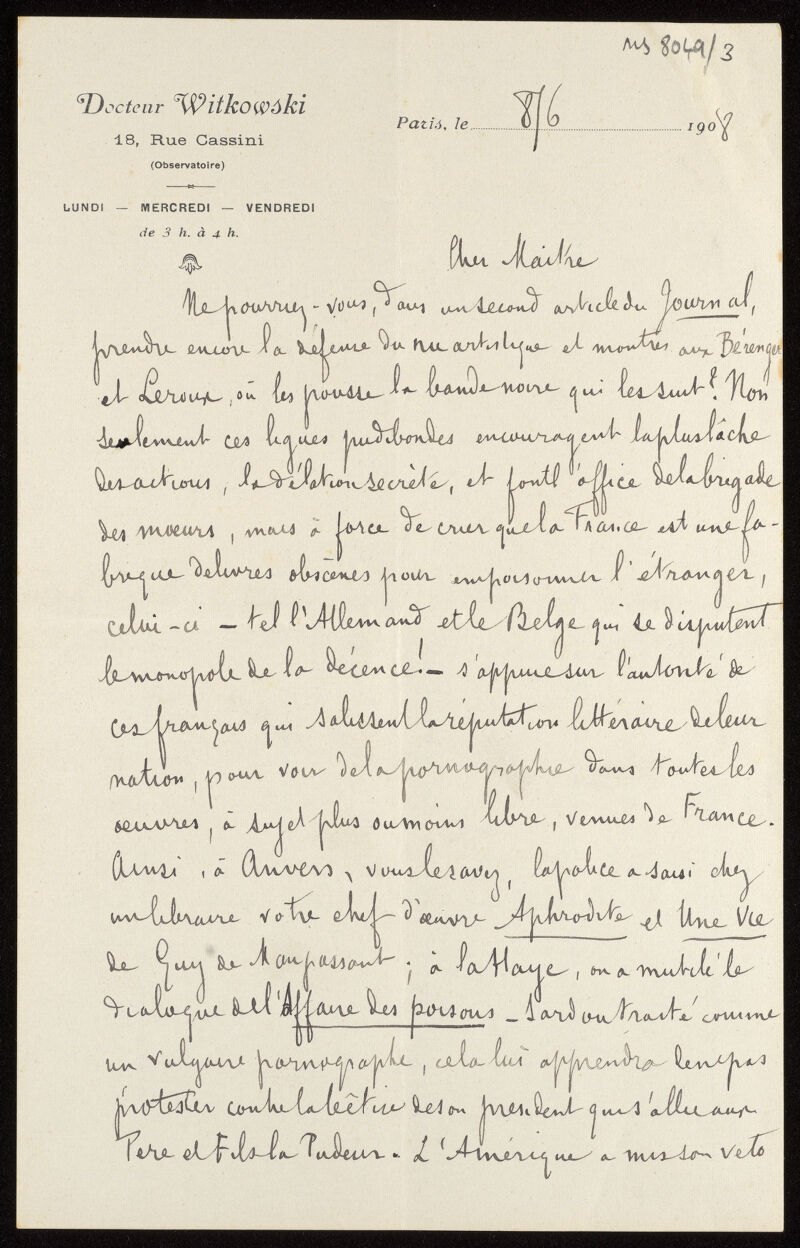 MS 8049/3
Docteur Witkowski
18, Rue Cassini
(Observatoire)
LUNDI — MERCREDI — VENDREDI
de 3 h. à 4 h.
Paris, le 8/6 1908
Cher Maitre
Ne pourriez-vous, dans un second article du Journal,
prendre encore la défense du nu artistique et montrer aux Bérenger
et Leroux, où les pousse la bande noire qui les suit? Non
seulement ces ligues pudibondes encouragent la plus lâche
des actions, la délation secrète, et font l'office de la brigade
des mœurs, mais à force de crier que la France est une fa-
brique de livres obscènes pour empoisonner l'étranger,
celui-ci — tel l'Allemand et le Belge qui se disputent
le monopole de la décence! — s'appuie sur l'autorité de
ces français qui salissent la réputation littéraire de leur
nation, pour voir de la pornographie dans toutes les
œuvres, à sujet plus ou moins libre, venues de France.
Ainsi, à Anvers, vous le savez, la police a saisi chez
un libraire votre chef d'œuvre Aphrodite et Une Vie
de Guy de Maupassant; à la Haye, on a mutilé le
dialogue de l'Affaire des poisons — Sardou traité comme
un vulgaire pornographe, cela lui apprendra de ne pas
protester contre la bêtise de son président qui s'allie aux
Pere et Fils la Pudeur. L'Amérique a mis son veto